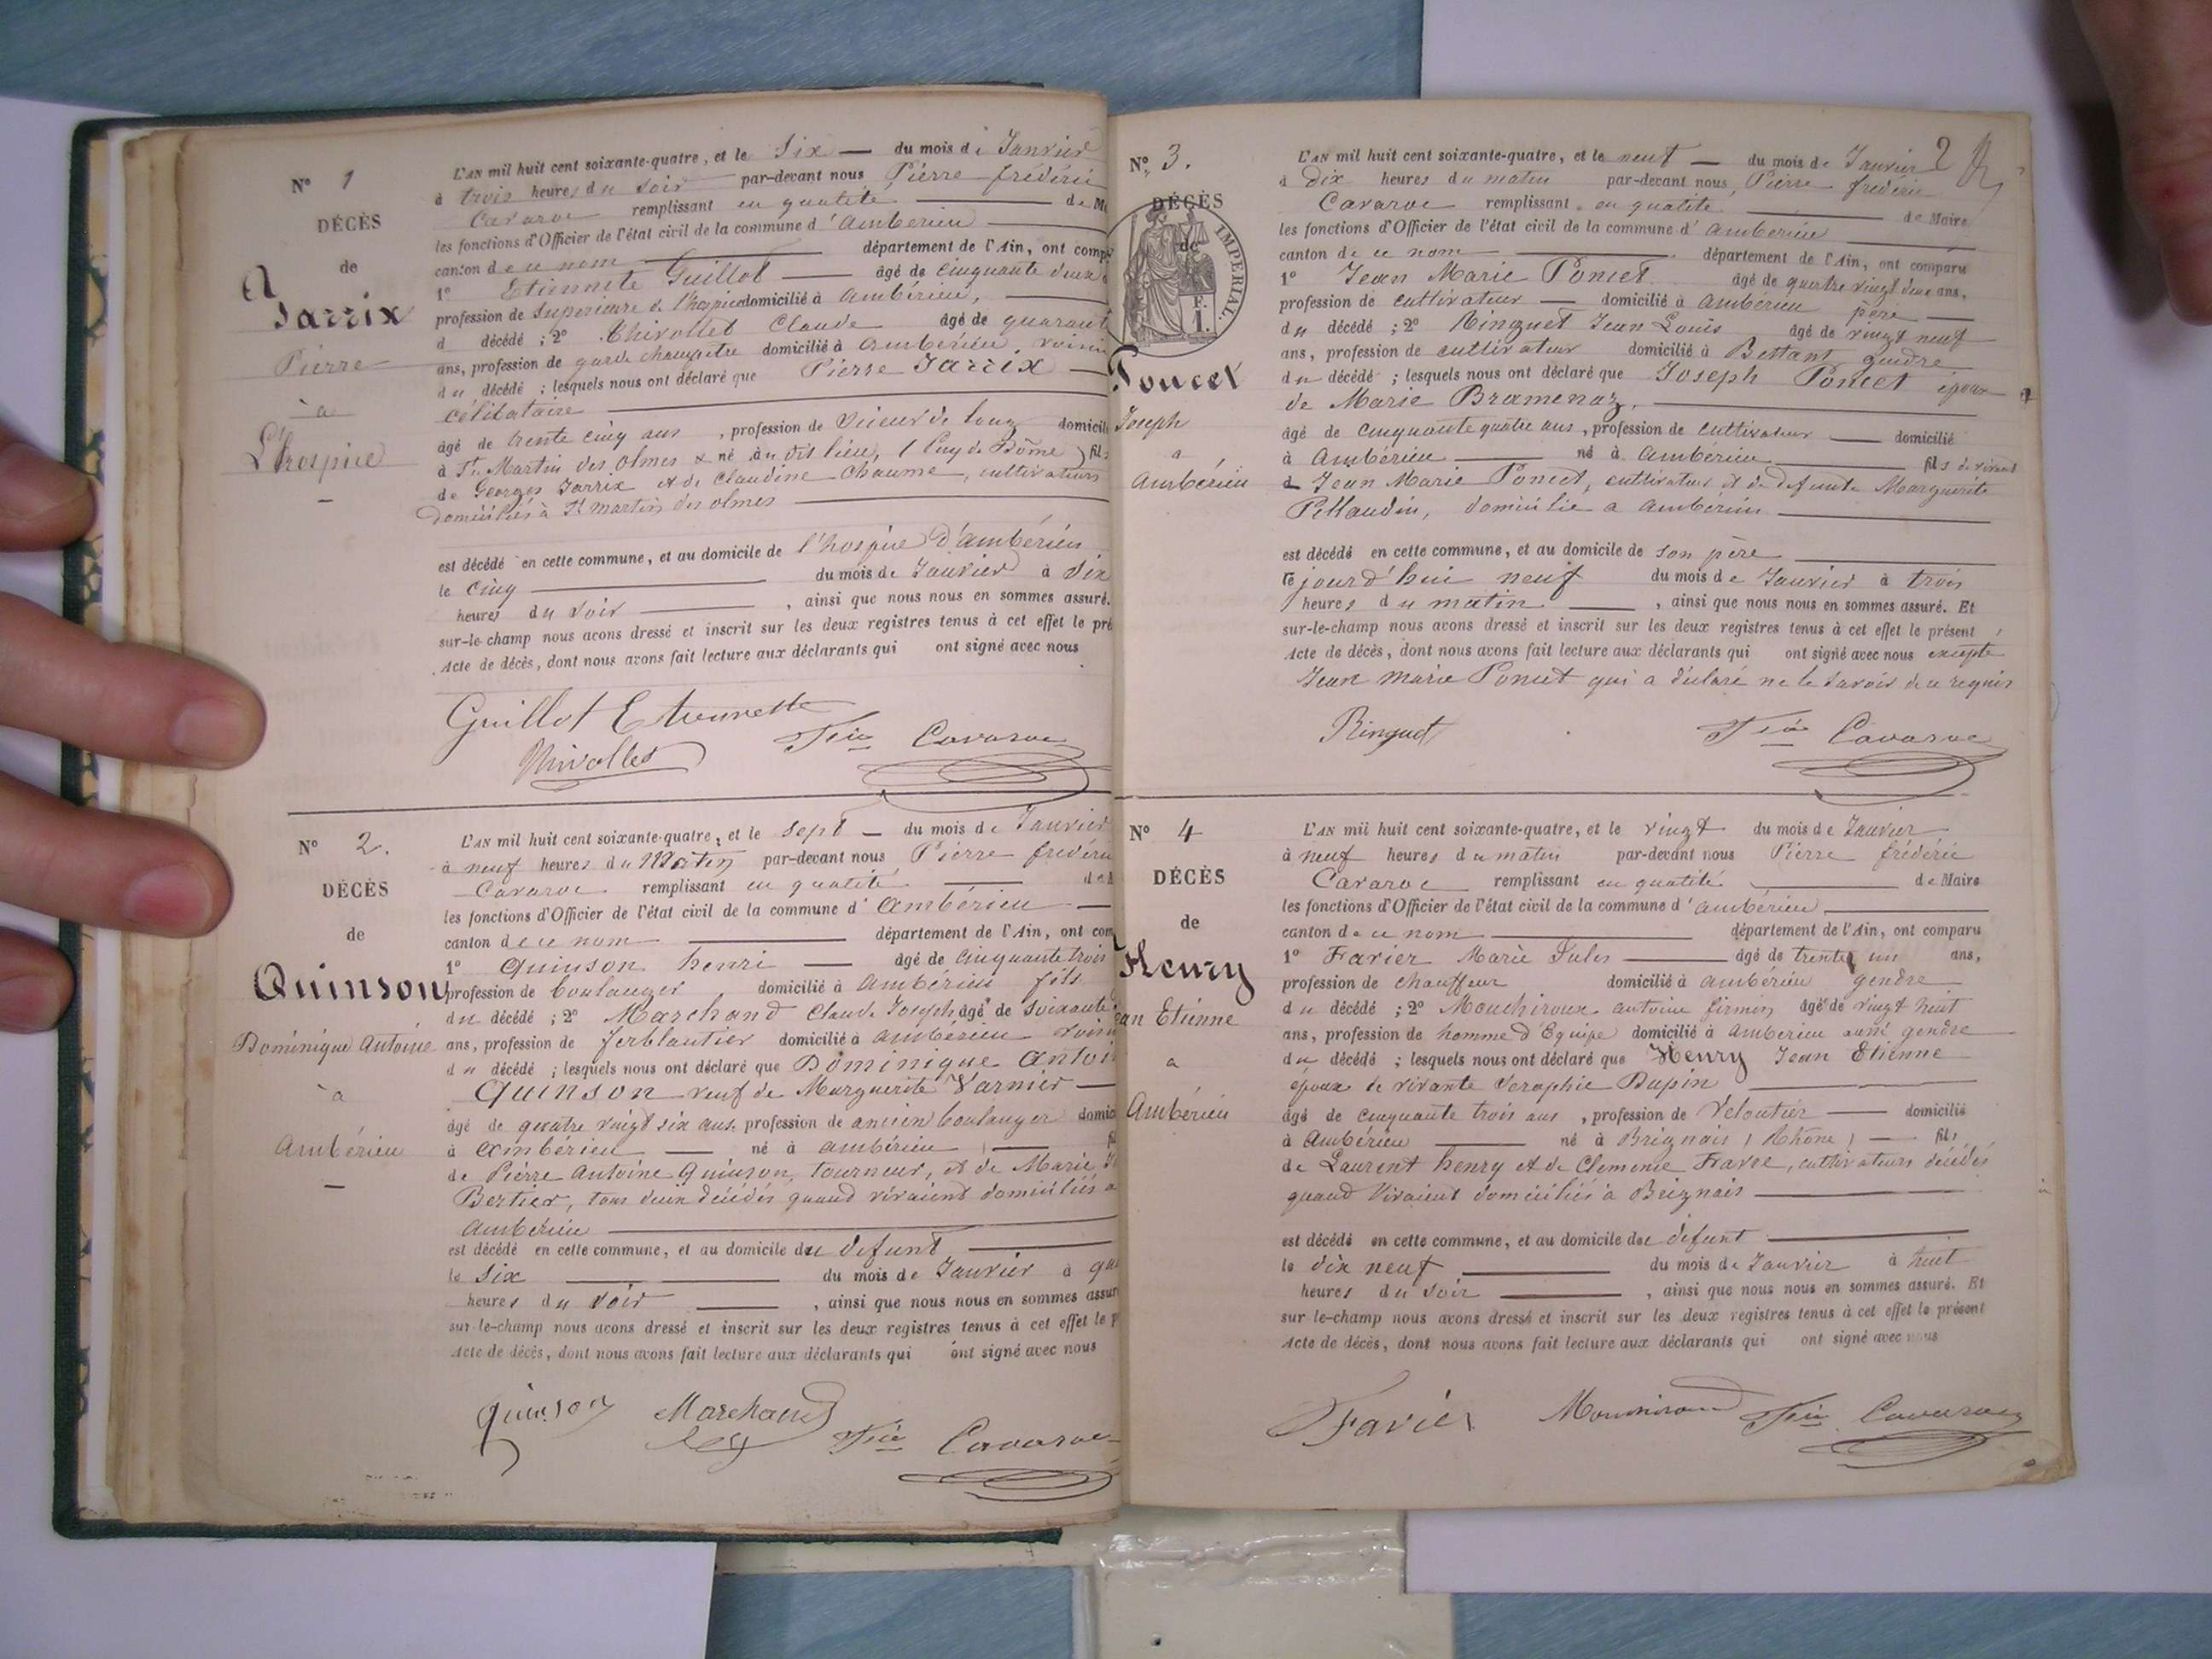 N° 1
DÉCÈS
de
Jarrix
Pierre
à
L'hospice
L'AN mil huit cent soixante-quatre, et le Six du mois de Janvier
à trois heures du soir par-devant nous Pierre frédéric
Cavaroc remplissant en qualité de M
les fonctions d'Officier de l'état civil de la commune d'Ambérieu
canton de ce nom département de l'Ain, ont comp
1° Etiennette Guillot âgé de Cinquante deux
profession de Superieure de l'hospice domicilié à Ambérieu,
d décédé ; 2° Claude âgé de quarant
ans, profession de garde champetre domicilié à Ambérieu, voisin
du décédé ; lesquels nous ont déclaré que Pierre Jarrix
célibataire
âgé de trente cinq ans, profession de Scieur de long domicili
à St Martin des olmes & né au dit lieu, (Puy de Dôme) fils
de Georges Jarrix et de Claudine Chaume, cultivateurs
domiciliés à St martin des olmes
est décédé en cette commune, et au domicile de l'hospice d'Ambérieu
le Cinq du mois de Janvier à Six
heures du soir, ainsi que nous nous en sommes assuré.
sur-le-champ nous avons dressé et inscrit sur les deux registres tenus à cet effet le pré
Acte de décès, dont nous avons fait lecture aux déclarants qui ont signé avec nous
Guillot Etiennette
Cavaroc
N° 2.
DÉCÈS
de
Quinson
Dominique Antoine
à
Ambérieu
L'AN mil huit cent soixante-quatre, et le Sept du mois de Janvier
à neuf heures du Matin par-devant nous Pierre frédéric
Cavaroc remplissant en qualité de M
les fonctions d'Officier de l'état civil de la commune d'Ambérieu
canton de ce nom département de l'Ain, ont com
1° Quinson henri âgé de Cinquante trois
profession de boulanger domicilié à Ambérieu fils
du décédé ; 2° Marchand Claude Joseph âgé de Soixante
ans, profession de ferblantier domicilié à Ambérieu voisin
du décédé ; lesquels nous ont déclaré que Dominique Antoi
Quinson veuf de Marguerite Varnier
âgé de quatre vingt six ans, profession de ancien boulanger domici
à Ambérieu né à Ambérieu fil
de Pierre Antoine Quinson, tourneur, et de Marie
Bertier, tous deux décédés quand vivaient domiciliés à
Ambérieu
est décédé en cette commune, et au domicile du defunt
le Six du mois de Janvier à qu
heures du soir, ainsi que nous nous en sommes assur
sur-le-champ nous avons dressé et inscrit sur les deux registres tenus à cet effet le p
Acte de décès, dont nous avons fait lecture aux déclarants qui ont signé avec nous
Quinson Marchand Cavaroc
2
N° 3.
DÉCÈS
de
IMPERIAL.
F.
1.
Poncet
Joseph
à
Ambérieu
L'AN mil huit cent soixante-quatre, et le neuf du mois de Janvier
à Dix heures du matin par-devant nous Pierre frédéric
Cavaroc remplissant en qualité de Maire
les fonctions d'Officier de l'état civil de la commune d'Ambérieu
canton de ce nom département de l'Ain, ont comparu
1° Jean Marie Poncet âgé de quatre vingt deux ans,
profession de cultivateur domicilié à Ambérieu père
du décédé ; 2° Ringuet Jean Louis âgé de vingt neuf
ans, profession de cultivateur domicilié à Bettant gendre
du décédé ; lesquels nous ont déclaré que Joseph Poncet époux
de Marie Bramenaz,
âgé de cinquante quatre ans, profession de cultivateur domicilié
à Ambérieu né à Ambérieu fils de vivant
d Jean Marie Poncet, cultivateur et de defunte Marguerite
Pellaudin, domicilié à Ambérieu
est décédé en cette commune, et au domicile de son père
le jourd'hui neuf du mois de Janvier à trois
heures du matin, ainsi que nous nous en sommes assuré. Et
sur-le-champ nous avons dressé et inscrit sur les deux registres tenus à cet effet le présent
Acte de décès, dont nous avons fait lecture aux déclarants qui ont signé avec nous excepté
Jean marie Poncet qui a déclaré ne le savoir de ce requis
Ringuet Cavaroc
N° 4
DÉCÈS
de
Henry
ean Etienne
à
Ambérieu
L'AN mil huit cent soixante-quatre, et le vingt du mois de Janvier
à neuf heures du matin par-devant nous Pierre frédéric
Cavaroc remplissant en qualité de Maire
les fonctions d'Officier de l'état civil de la commune d'Ambérieu
canton de ce nom département de l'Ain, ont comparu
1° Favier Marie Jules âgé de trente un ans,
profession de chauffeur domicilié à Ambérieu gendre
du décédé ; 2° Mouchiroux antoine firmin âgé de vingt huit
ans, profession de homme d'Equipe domicilié à Ambérieu aussi gendre
du décédé ; lesquels nous ont déclaré que Henry Jean Etienne
époux de vivante Seraphie Dupin
âgé de cinquante trois ans, profession de Veloutier domicilié
à Ambérieu né à Brignais (Rhône) fils
de Laurent henry et de Clemence Favre, cultivateurs décédés
quand vivaient domiciliés à Brignais
est décédé en cette commune, et au domicile du défunt
le dix neuf du mois de Janvier à huit
heures du soir, ainsi que nous nous en sommes assuré. Et
sur-le-champ nous avons dressé et inscrit sur les deux registres tenus à cet effet le présent
Acte de décès, dont nous avons fait lecture aux déclarants qui ont signé avec nous
Favier Cavaroc